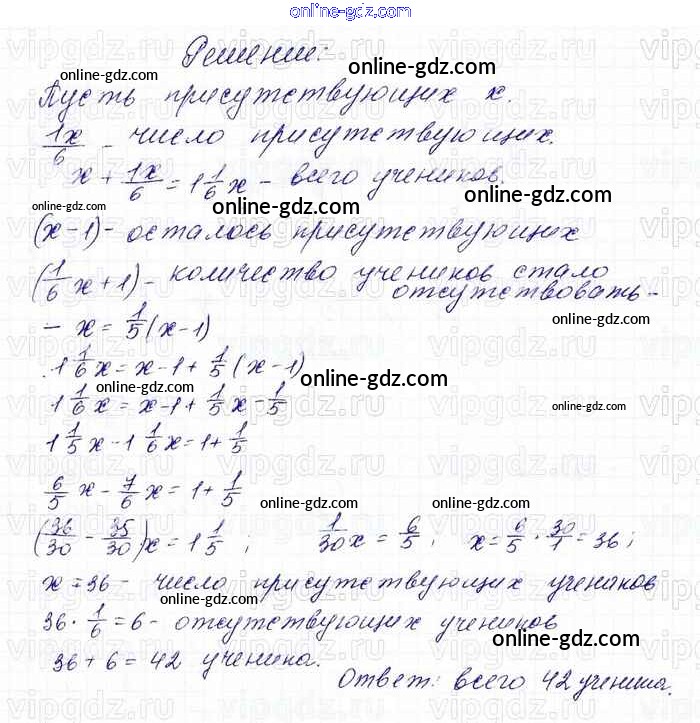 online-gdz.com
Решение:
online-gdz.com
Пусть присутствующих x.
1x/6 - число присутствующих.
x + 1x/6 = 1 1/6 x - всего учеников
online-gdz.com online-gdz.com
(x-1) - осталось присутствующих
(1/6 x + 1) - количество учеников стало
отсутствовать -
- x = 1/5 (x-1)
online-gdz.com
1 1/6 x = x-1 + 1/5 (x-1)
online-gdz.com online-gdz.com
1 1/6 x = x-1 + 1/5 x - 1/5
online-gdz.com
1 1/5 x - 1 1/6 x = 1 + 1/5
6/5 x - 7/6 x = 1 + 1/5
online-gdz.com online-gdz.com
(36/30 - 35/30) x = 1 1/5 ; 1/30 x = 6/5 ; x = 6/5 · 30/1 = 36 ;
x = 36 - число присутствующих учеников
online-gdz.com
36 · 1/6 = 6 - отсутствующих учеников
online-gdz.com
36 + 6 = 42 ученика.
Ответ: всего 42 ученика.